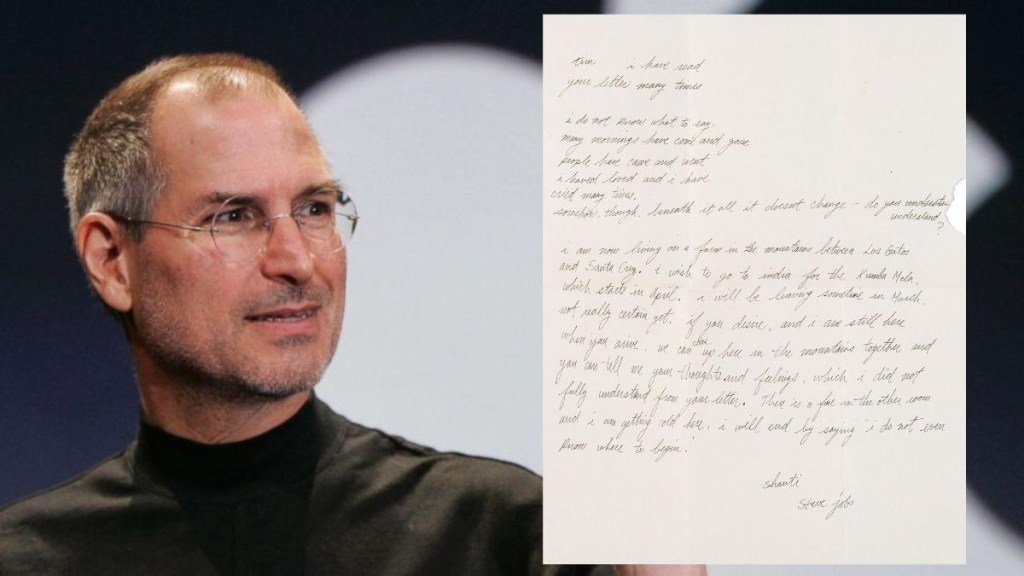 tim i have read
your letter many times
i do not know what to say.
many mornings have come and gone
people have came and went
i haved loved and i have
cried many times.
somehow, though, beneath it all it doesnt change - do you understand
understand
?
i am now living on a farm in the mountains between Los Gatos
and Santa Cruz. i wish to go to india for the Kumba Mela,
which starts in April. i will be leaving sometime in March,
not really certain yet. if you desire, and i am still here
when you arive, we can be up here in the mountains together and
you can tell me your thoughts and feelings, which i did not
fully understand from your letter. There is a fire in the other room
and i am getting cold here. i will end by saying i do not even
know where to begin.
shanti
steve jobs